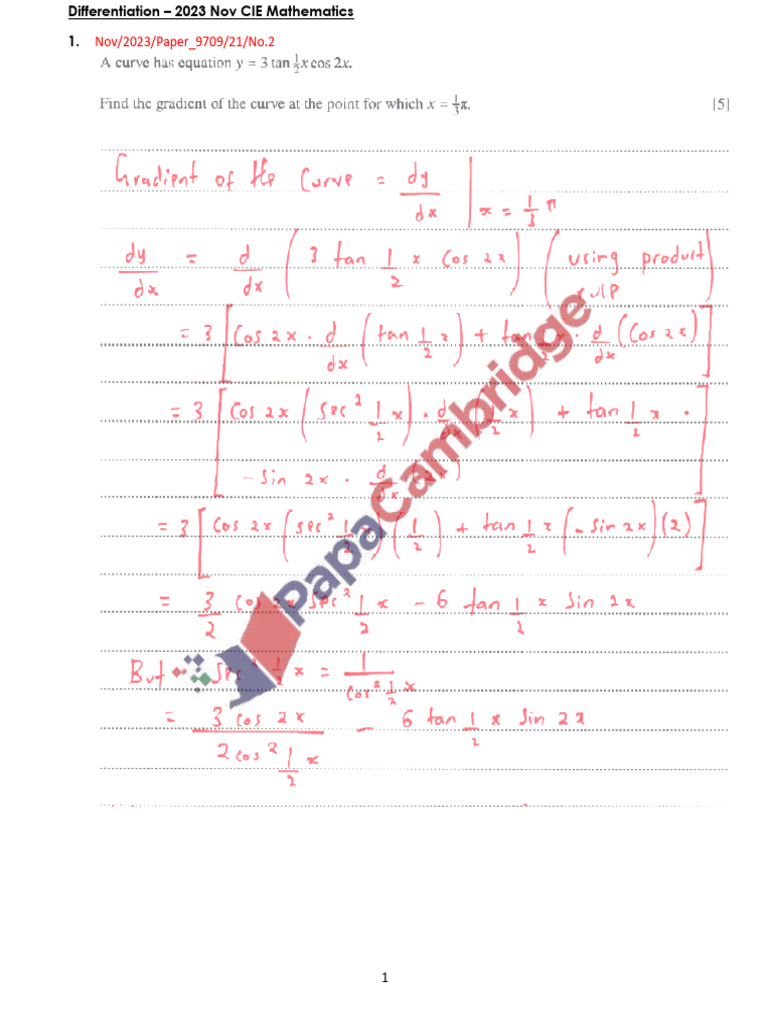 Differentiation – 2023 Nov CIE Mathematics
1. Nov/2023/Paper_9709/21/No.2
A curve has equation y = 3 tan ½x cos 2x.
Find the gradient of the curve at the point for which x = ⅓π. [5]
Gradient of the Curve = dy/dx | x = 1/3 π
dy/dx = d/dx (3 tan 1/2 x Cos 2x) (using product rule)
= 3 [Cos 2x · d/dx (tan 1/2 x) + tan 1/2 x · d/dx (Cos 2x)]
= 3 [Cos 2x (sec² 1/2 x) · d/dx (1/2 x) + tan 1/2 x ·
- Sin 2x · d/dx (2x)]
= 3 [Cos 2x (sec² 1/2 x) (1/2) + tan 1/2 x (- Sin 2x)(2)]
= 3/2 Cos 2x sec² 1/2 x - 6 tan 1/2 x Sin 2x
But sec² 1/2 x = 1/Cos² 1/2 x
= 3 Cos 2x / 2 Cos² 1/2 x - 6 tan 1/2 x Sin 2x
PapaCambridge
1